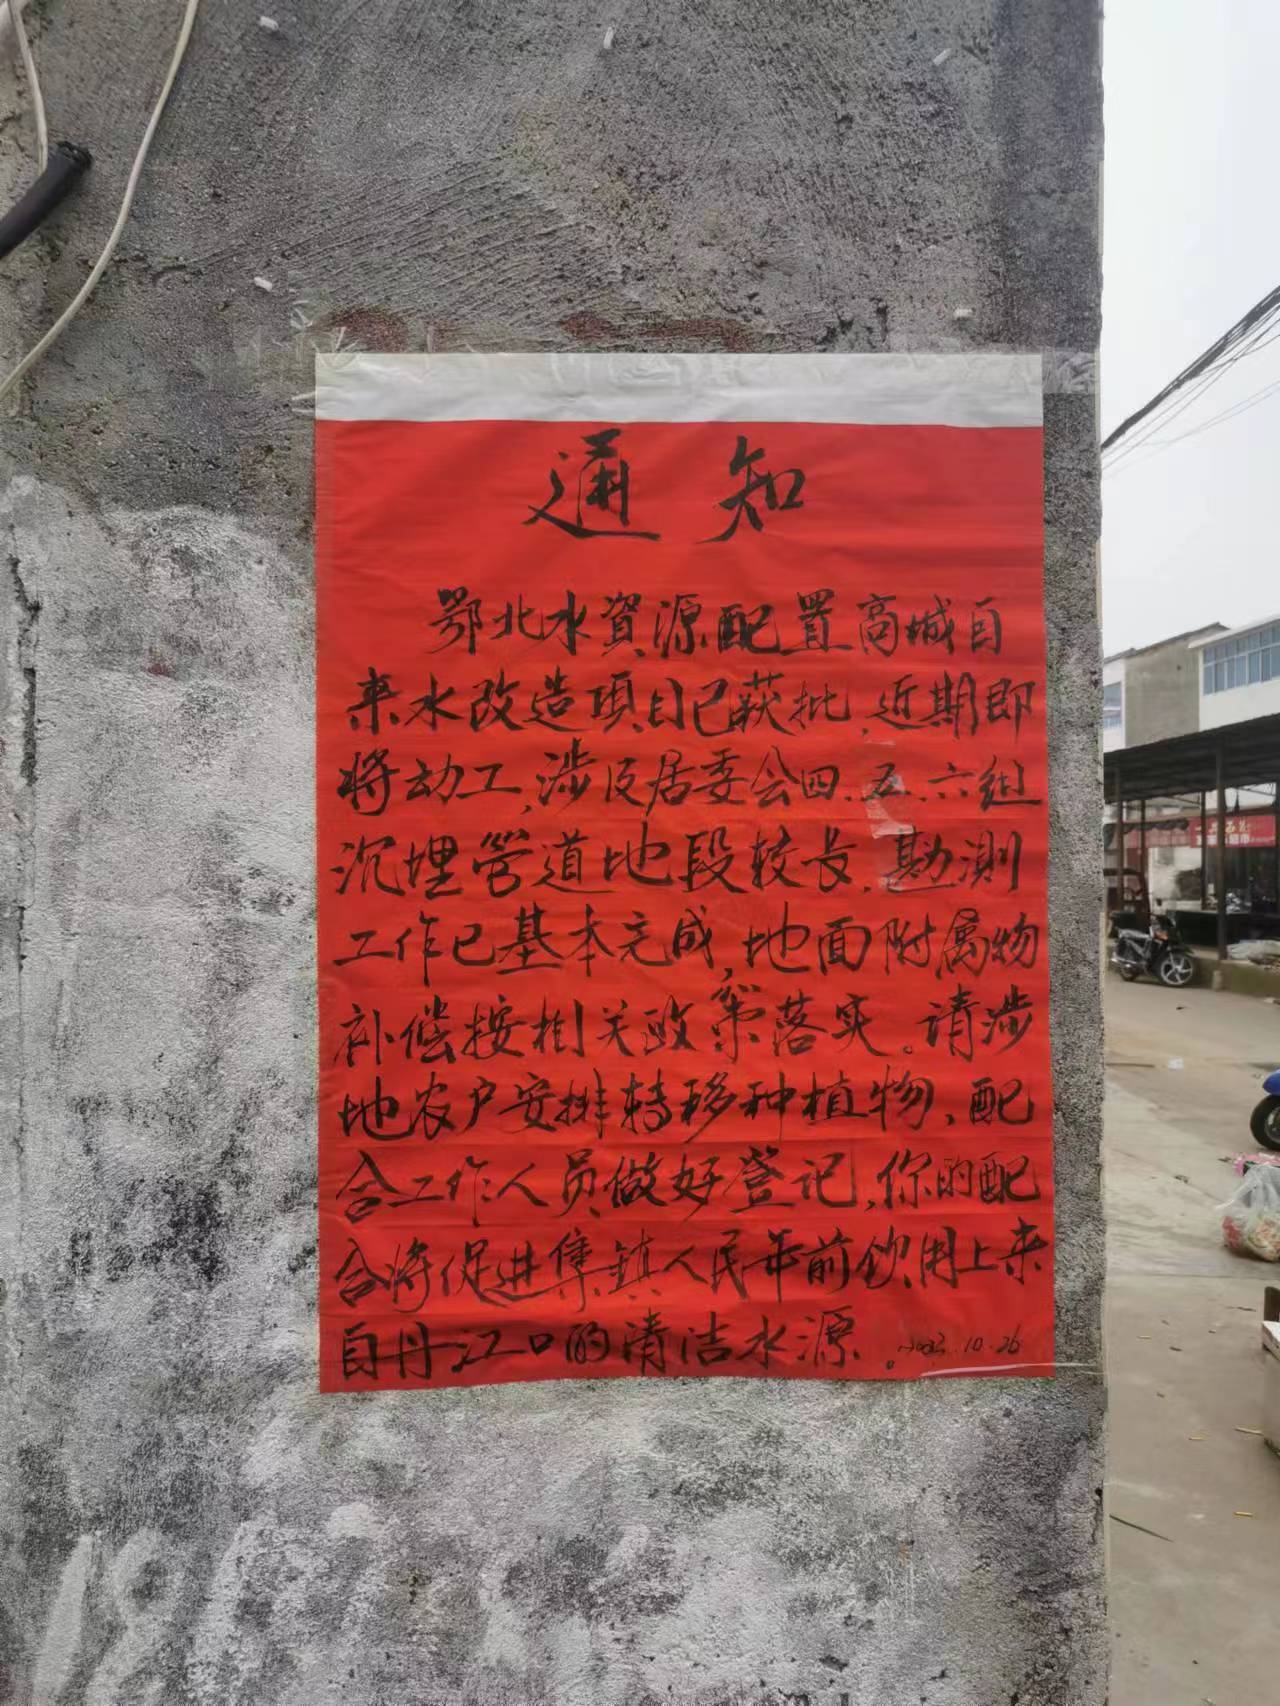 通知
鄂北水資源配置高城自
来水改造項目已获批,近期即
将动工,涉及居委会四、五、六组
沉埋管道地段较长,勘測
工作已基本完成,地面附属物
补偿按相关政策落实。请涉
地农户安排转移种植物、配
合工作人员做好登记,你的配
合将促进集鎮人民年前饮用上来
自丹江口的清洁水源。
10.26